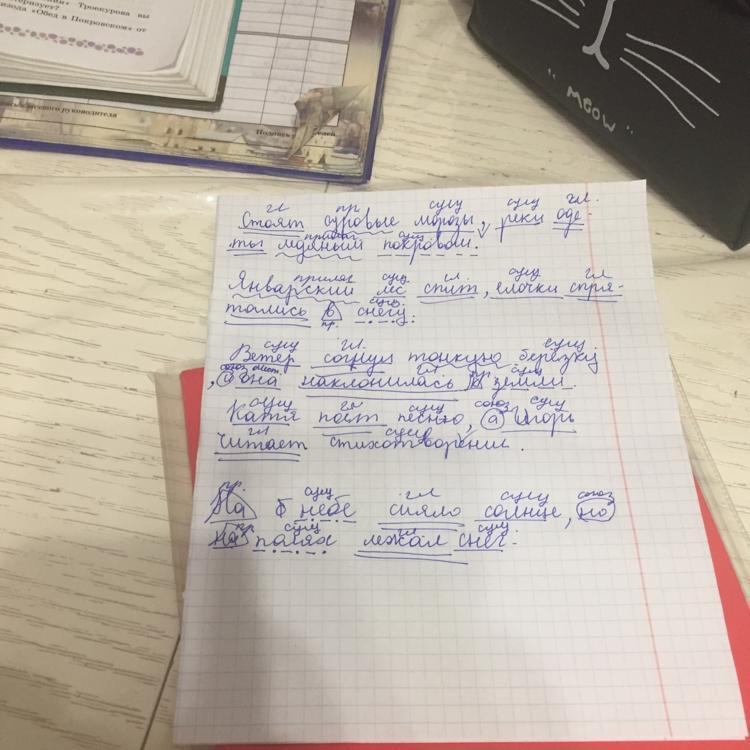 Троекурова вы
теризует?
изода «Обед в Покровском» от
ного руководителя
" MEOW "
гл. пр. сущ сущ гл.
Стоят суровые морозы, реки оде-
прилаг сущ
ты ледяным покровом.
прилаг сущ гл. сущ гл
Январский лес спит, елочки спря-
сущ.
тались в снегу.
пр.
сущ гл. сущ
Ветер согнул тонкую берёзку
союз мест. гл пр. сущ
, а она наклонилась к земли.
сущ гл сущ союз сущ
Катя поёт песню, а Игорь
гл сущ
читает стихотворение.
пр. сущ гл сущ союз
На небе сияло солнце, но
пр. сущ гл сущ
на полях лежал снег.